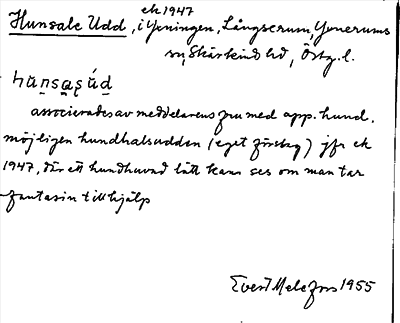 ek 1947
Hunsale Udd, i Yxningen, Långserum, Gryterums
sn, Skärkind hd, Östg. l.
hünsaşúd
associerades av meddelarens fru med app. hund.
möjligen hundhalsudden (eget förslag) jfr ek
1947, där ett hundhuvud lätt kan ses om man tar
fantasin till hjälp
Evert Melefors 1955